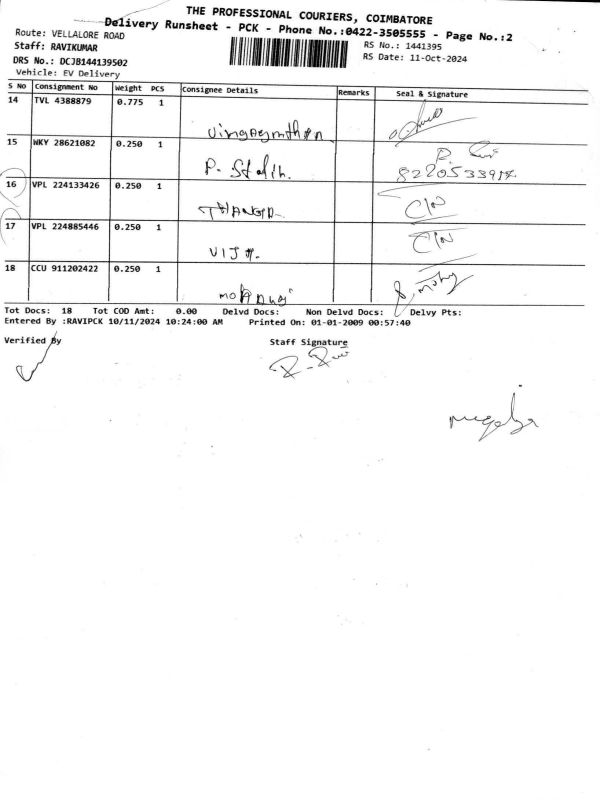 THE PROFESSIONAL COURIERS, COIMBATORE
Delivery Runsheet - PCK - Phone No.:0422-3505555 - Page No.:2
Route: VELLALORE ROAD
RS No.: 1441395
Staff: RAVIKUMAR
RS Date: 11-Oct-2024
DRS No.: DCJB144139502
Vehicle: EV Delivery
S No Consignment No Weight PCS Consignee Details Remarks Seal & Signature
14 TVL 4388879 0.775 1
15 WKY 28621082 0.250 1
P. Stalin.
8220533914
16 VPL 224133426 0.250 1
THANGA
17 VPL 224885446 0.250 1
VIJA.
18 CCU 911202422 0.250 1
Tot Docs: 18 Tot COD Amt: 0.00 Delvd Docs: Non Delvd Docs: Delvy Pts:
Entered By :RAVIPCK 10/11/2024 10:24:00 AM Printed On: 01-01-2009 00:57:40
Verified By Staff Signature